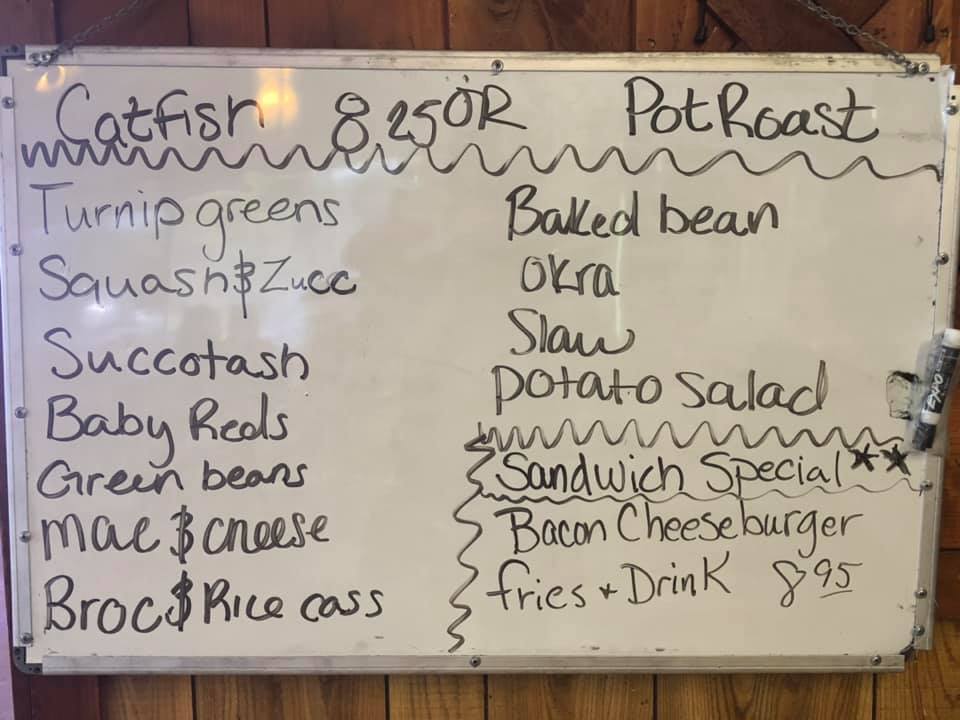 Catfish 8.25 OR Pot Roast
Turnip greens
Squash & Zucc
Succotash
Baby Reds
Green beans
Mac & cheese
Broc & Rice cass
Baked bean
Okra
Slaw
Potato Salad
Sandwich Special**
Bacon Cheeseburger
fries + Drink 8 95
EXPO